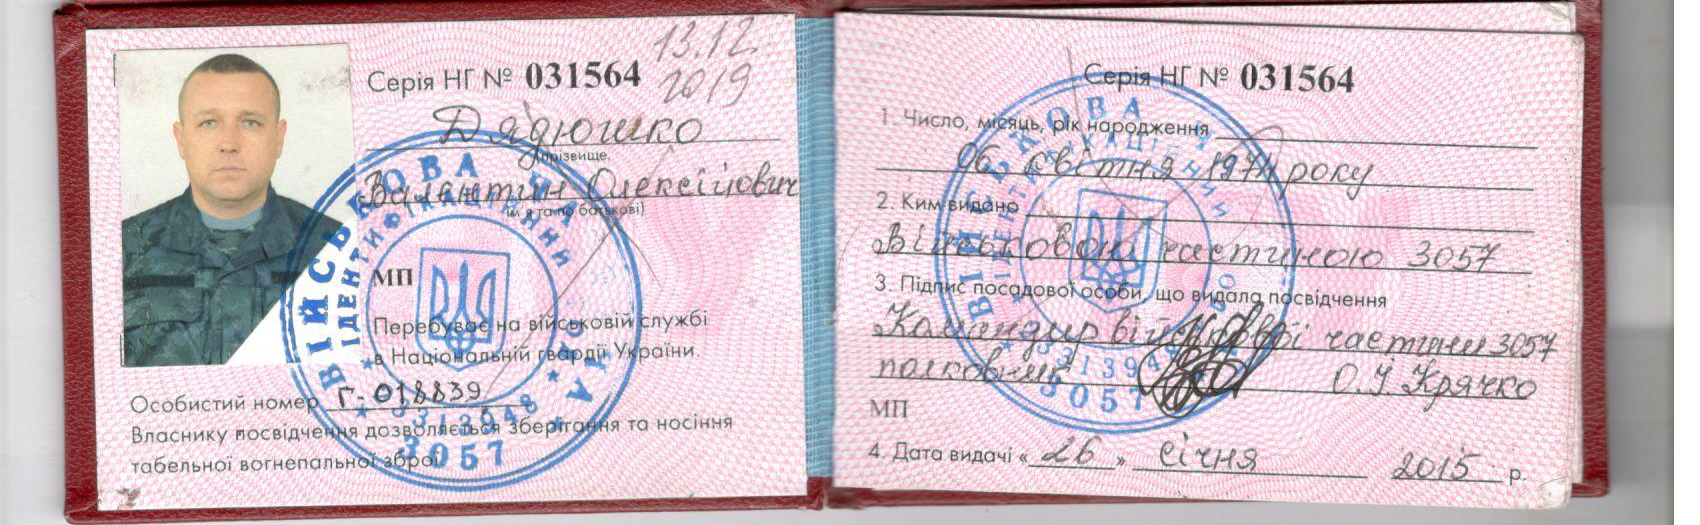 13.12
2019
Серія НГ № 031564
Дядюшко
прізвище,
Валентин Олексійович
ім'я та по батькові)
МП
Перебуває на військовій службі
в Національній гвардії України.
Особистий номер Г-018839
Власнику посвідчення дозволяється зберігання та носіння
табельної вогнепальної зброї
ВІЙСЬКОВА ЧАСТИНА
ІДЕНТИФІКАЦІЙНИЙ
3057
Серія НГ № 031564
1. Число, місяць, рік народження
06 квітня 1974 року
2. Ким видано
Військовою частиною 3057
3. Підпис посадової особи, що видала посвідчення
Командир військової частини 3057
полковник О.І. Крячко
МП
4. Дата видачі « 26 » січня 2015 р.
ВІЙСЬКОВА
3057